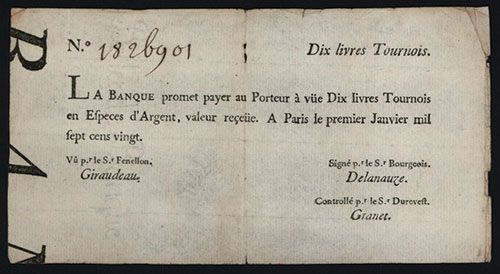 N.º 1826901 Dix livres Tournois.
LA BANQUE promet payer au Porteur à vüe Dix livres Tournois
en Eſpeces d'Argent, valeur reçeüe. A Paris le premier Janvier mil
ſept cens vingt.
Vû p.r le S.r Fenellon.
Giraudeau.
Signé p.r le S.r Bourgeois.
Delanauze.
Controllé p.r le S.r Dureveſt.
Granet.